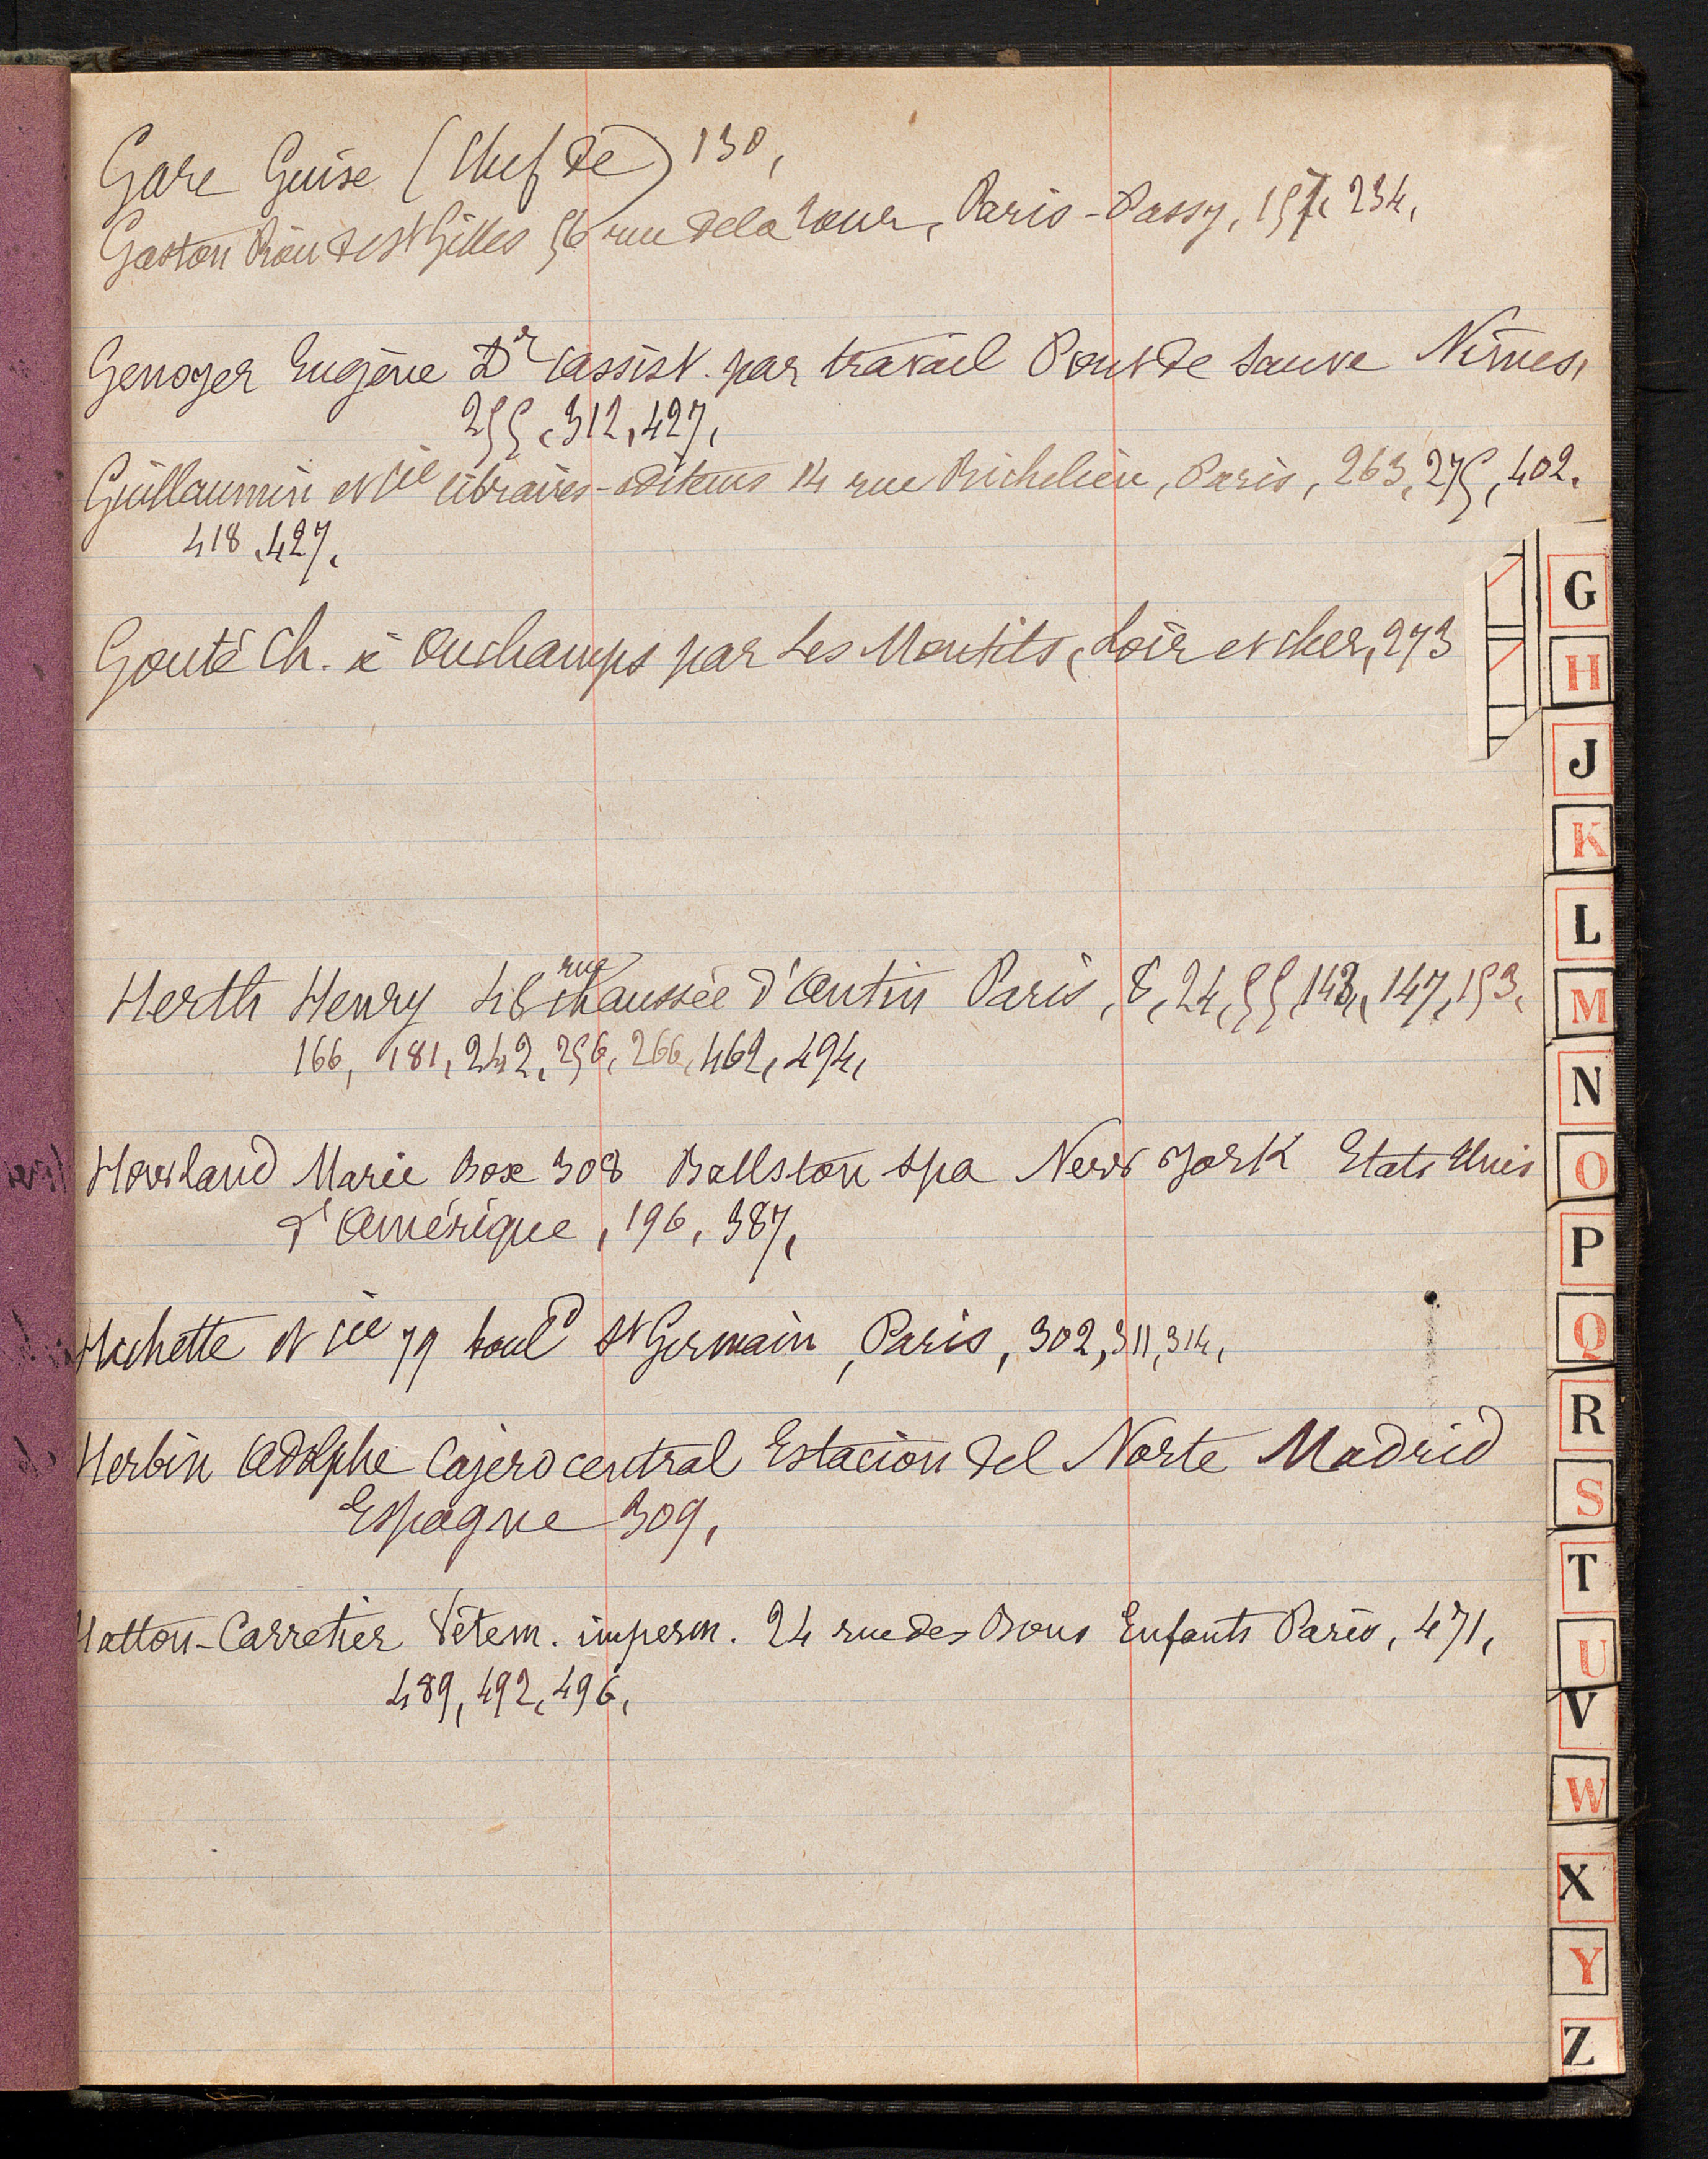 Gare Guise (Chef de) 130,
Gaston Piou de St Gilles 56 rue de la Tour, Paris-Passy, 157, 234,
Genoyer Eugène Dr l'assist. par travail Pont de Sauve Nîmes,
255, 312, 427,
Guillaumin et Cie libraires-editeurs 14 rue Richelieu, Paris, 263, 275, 402,
418, 427,
Gouté Ch. à Ouchamps par Les Montils, Loir et Cher, 273
Herth Henry 46 rue Chaussée d'Antin Paris, 8, 24, 55, 143, 147, 153,
166, 181, 242, 256, 266, 462, 494,
Howland Marie Box 308 Ballston Spa New York Etats Unis
d'Amérique, 196, 387,
Hachette et Cie 79 bould St Germain, Paris, 302, 311, 314,
Herbin Adolphe Cajero central Estacion del Norte Madrid
Espagne 309,
Hatton-Carretier Vêtem. imperm. 24 rue des Bons Enfants Paris, 471,
489, 492, 496,
G
H
J
K
L
M
N
O
P
Q
R
S
T
U
V
W
X
Y
Z